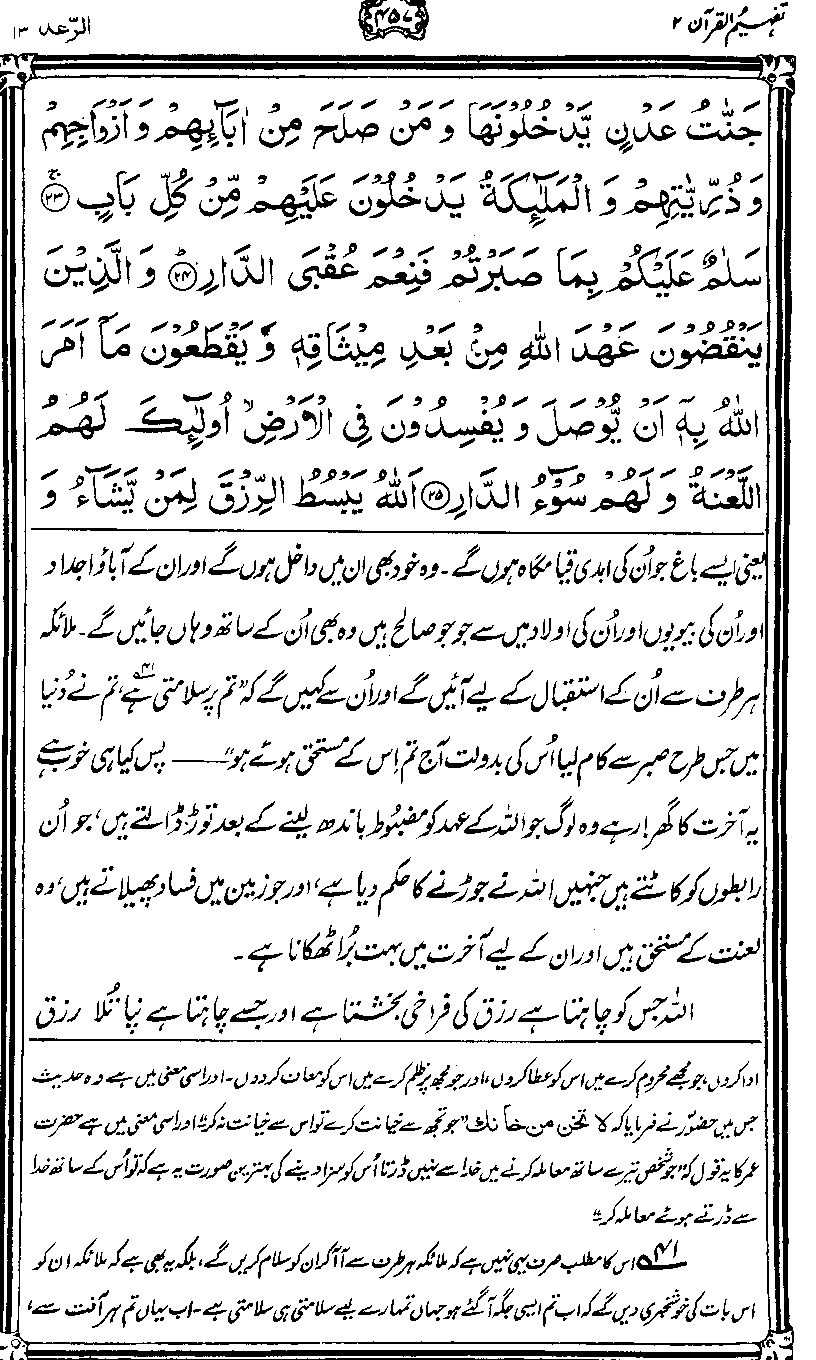 تفہیم القرآن ۲
۴۵۷
الرّعد ۱۳
جَنّٰتُ عَدْنٍ يَّدْخُلُوْنَهَا وَ مَنْ صَلَحَ مِنْ اٰبَآئِهِمْ وَ اَزْوَاجِهِمْ
وَ ذُرِّيّٰتِهِمْ وَ الْمَلٰٓئِكَةُ يَدْخُلُوْنَ عَلَيْهِمْ مِّنْ كُلِّ بَابٍ ۚ‏﴿۲۳﴾
سَلٰمٌ عَلَيْكُمْ بِمَا صَبَرْتُمْ فَنِعْمَ عُقْبَى الدَّارِ ؕ‏﴿۲۴﴾ وَ الَّذِيْنَ
يَنْقُضُوْنَ عَهْدَ اللّٰهِ مِنْۢ بَعْدِ مِيْثَاقِهٖ وَ يَقْطَعُوْنَ مَاۤ اَمَرَ
اللّٰهُ بِهٖۤ اَنْ يُّوْصَلَ وَ يُفْسِدُوْنَ فِى الْاَرْضِ ۙ اُولٰٓئِكَ لَهُمُ
اللَّعْنَةُ وَ لَهُمْ سُوْٓءُ الدَّارِ ﴿۲۵﴾ اَللّٰهُ يَبْسُطُ الرِّزْقَ لِمَنْ يَّشَآءُ وَ
یعنی ایسے باغ جو اُن کی ابدی قیامگاہ ہوں گے۔ وہ خود بھی ان میں داخل ہوں گے اور ان کے آباؤ اجداد
اور اُن کی بیویوں اور اُن کی اولاد میں سے جو جو صالح ہیں وہ بھی اُن کے ساتھ وہاں جائیں گے۔ ملائکہ
ہر طرف سے اُن کے استقبال کے لیے آئیں گے اور اُن سے کہیں گے کہ ”تم پر سلامتی ہے،۴۱ تم نے دُنیا
میں جس طرح صبر سے کام لیا اُس کی بدولت آج تم اِس کے مستحق ہوئے ہو“ —— پس کیا ہی خوب ہے
یہ آخرت کا گھر! رہے وہ لوگ جو اللہ کے عہد کو مضبُوط باندھ لینے کے بعد توڑ ڈالتے ہیں، جو اُن
رابطوں کو کاٹتے ہیں جنہیں اللہ نے جوڑنے کا حکم دیا ہے، اور جو زمین میں فساد پھیلاتے ہیں، وہ
لعنت کے مستحق ہیں اور ان کے لیے آخرت میں بہت بُرا ٹھکانا ہے۔
اللہ جس کو چاہتا ہے رزق کی فراخی بخشتا ہے اور جسے چاہتا ہے نپا تُلا رزق
ادا کروں، جو مجھے محروم کرے میں اس کو عطا کروں، اور جو مجھ پر ظلم کرے میں اس کو معاف کردوں۔ اور اسی معنی میں ہے وہ حدیث
جس میں حضورؐ نے فرمایا کہ لا تخن من خانك ”جو تجھ سے خیانت کرے تو اس سے خیانت نہ کر“۔ اور اسی معنی میں ہے حضرت
عمر کا یہ قول کہ ”جو شخص تیرے ساتھ معاملہ کرنے میں خدا سے نہیں ڈرتا اُس کو سزا دینے کی بہترین صورت یہ ہے کہ تو اُس کے ساتھ خدا
سے ڈرتے ہوئے معاملہ کر“۔
۴۱ اس کا مطلب صرف یہی نہیں ہے کہ ملائکہ ہر طرف سے آ آ کر ان کو سلام کریں گے، بلکہ یہ بھی ہے کہ ملائکہ ان کو
اس بات کی خوشخبری دیں گے کہ اب تم ایسی جگہ آ گئے ہو جہاں تمہارے لیے سلامتی ہی سلامتی ہے۔ اب یہاں تم ہر آفت سے،